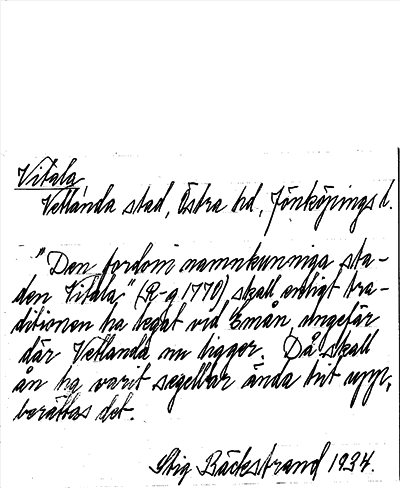 Vitala
Vetlanda stad, Östra hd, Jönköpings l.
"Den fordom namnkunniga sta-
den Vitala" (R-g 1770) skall enligt tra-
ditionen ha legat vid Emån, ungefär
där Vetlanda nu ligger. Då skall
ån ha varit segelbar ända hit upp,
berättas det.
Stig Bäckstrand 1934.